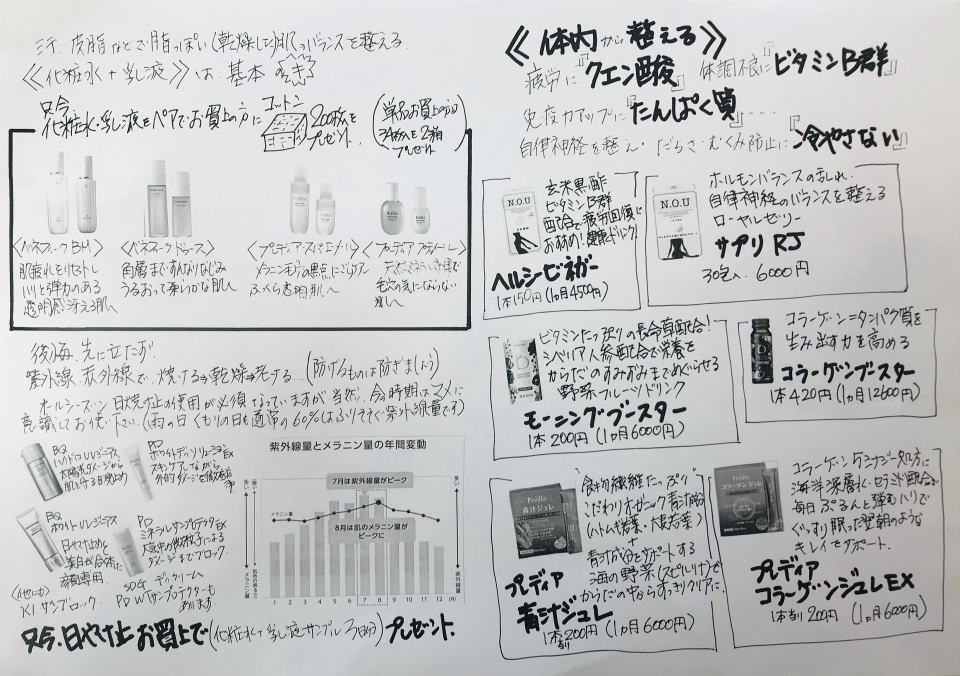 汗、皮脂などで脂っぽい(乾燥した)肌のバランスを整える
≪化粧水+乳液≫は、基本の
只今
化粧水・乳液をペアでお買上の方に
コットン
200枚を
プレゼント
(単品お買上の方は
34枚入を2箱
プレゼント)
<ベネフィークBM>
肌疲れをリセットし
ハリと弾力のある
透明感冴える肌へ
<ベネフィークドゥース>
角層まですんなりなじみ
うるおって柔らかな肌へ
メラニンモトの黒点にアプローチ
ふっくら透明肌へ
毛穴の気にならない
肌へ
後悔、先に立たず。
紫外線・赤外線で、焼ける⇒乾燥⇒老ける…(防げるものは防ぎましょう)
オールシーズン日焼け止め使用が必須となっていますが、当然、今時期はマメに
意識してお使い下さい。(雨の日、くもりの日も通常の60%はふりそそぐ紫外線量です)
BQ
ハイドロUVジーニアス
太陽光ダメージから
肌を守る日焼け止め
PD
ホワイトディソリューションEX
スキンケアしながら
BQ
ホワイトUVジーニアス
日やけ止めと
美白が合体した
PD
ミネラルサンプロテクターEX
大気中の微粒子による
ダメージまでブロック。
(他にも)
KIサンブロック、
SDG デイクリーム
PD WTサンプロテクターも
あります。
紫外線量とメラニン量の年間変動
多い
メラニン量
7月は紫外線量がピーク
8月は肌のメラニン量が
ピークに
多い
メラニン量
紫外線量
1 2 3 4 5 6 7 8 9 10 11 12 (月)
只今、日やけ止めお買上で(化粧水+乳液サンプル3日分)プレゼント。
≪体内から整える≫
疲労に『クエン酸』 体調不良に『ビタミンB群』
免疫力アップに『たんぱく質』……
自律神経を整え・だるさ・むくみ防止に『冷やさない』
N.O.U
玄米黒酢
ビタミンB群
配合で疲労回復に
おすすめ!健康ドリンク!
ヘルシービネガー
1本150円(1ヵ月4500円)
N.O.U
ホルモンバランスの乱れ、
自律神経のバランスを整える
ローヤルゼリー
サプリRJ
30包入、6000円
ビタミンたっぷりの長命草配合!
シベリア人参配合で栄養を
からだのすみずみまでめぐらせる
野菜フルーツドリンク
モーニングブースター
1本200円(1ヵ月6000円)
コラーゲン=タンパク質を
生み出す力を高める
コラーゲンブースター
1本420円(1ヵ月12600円)
Prédia
青汁ジュレ
食物繊維たっぷり
こだわりオーガニック青汁
(ハトムギ若葉・大麦若葉)
+
青汁成分をサポートする
海の野菜(スピルリナ)で
からだの中からすっきりクリアに。
プレディア
青汁ジュレ
1本当り200円(1ヵ月6000円)
Prédia
コラーゲンジュレ
コラーゲンシナジー処方に
海洋深層水・セラミド配合で
毎日ぷるんと弾むハリで
ぐっすり眠った翌朝のような
キレイをサポート。
プレディア
コラーゲンジュレEX
1本当り200円(1ヵ月6000円)